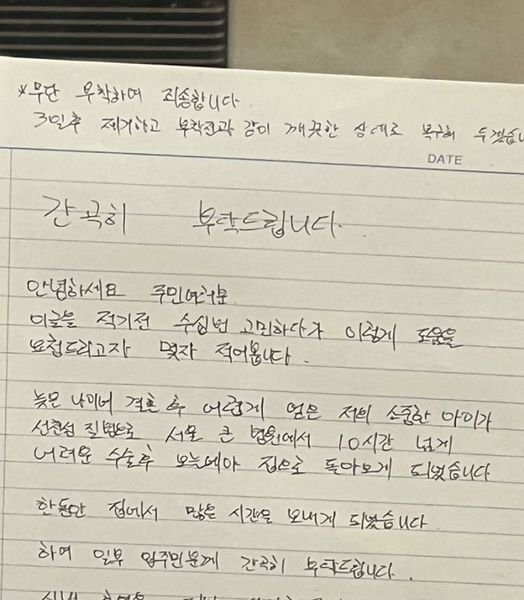 *무단 부착하여 죄송합니다
3일후 제거하고 부착전과 같이 깨끗한 상태로 복구해 두겠습니
DATE
간곡히 부탁드립니다.
안녕하세요 주민여러분
이글을 적기전 수십번 고민하다가 이렇게 도움을
요청드리고자 몇자 적어봅니다.
늦은 나이에 결혼 후 어렵게 얻은 저의 소중한 아이가
선천성 질병으로 서울 큰 병원에서 10시간 넘게
어려운 수술후 오늘에야 집으로 돌아오게 되었습니다
한동안 집에서 많은 시간을 보내게 되었습니다
하여 일부 입주민분께 간곡히 부탁드립니다.